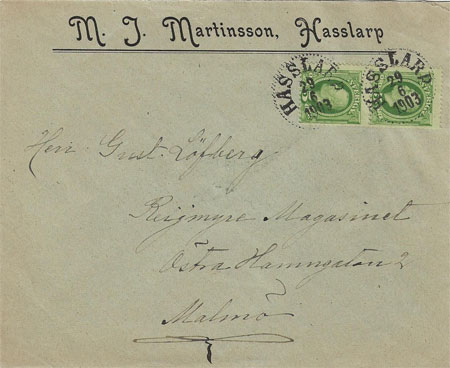 M. J. Martinsson, Hasslarp
HASSLARP
29
6
1903
HASSLARP
29
6
1903
Herr Gust. Löfberg
Reijmyre Magasinet
Östra Hamngatan 2
Malmö